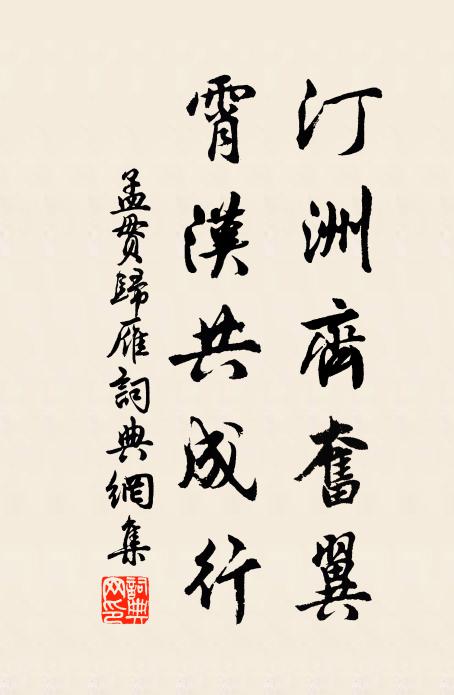 汀洲齊奮翼
霄漢共成行
孟貫歸雁詞典網集